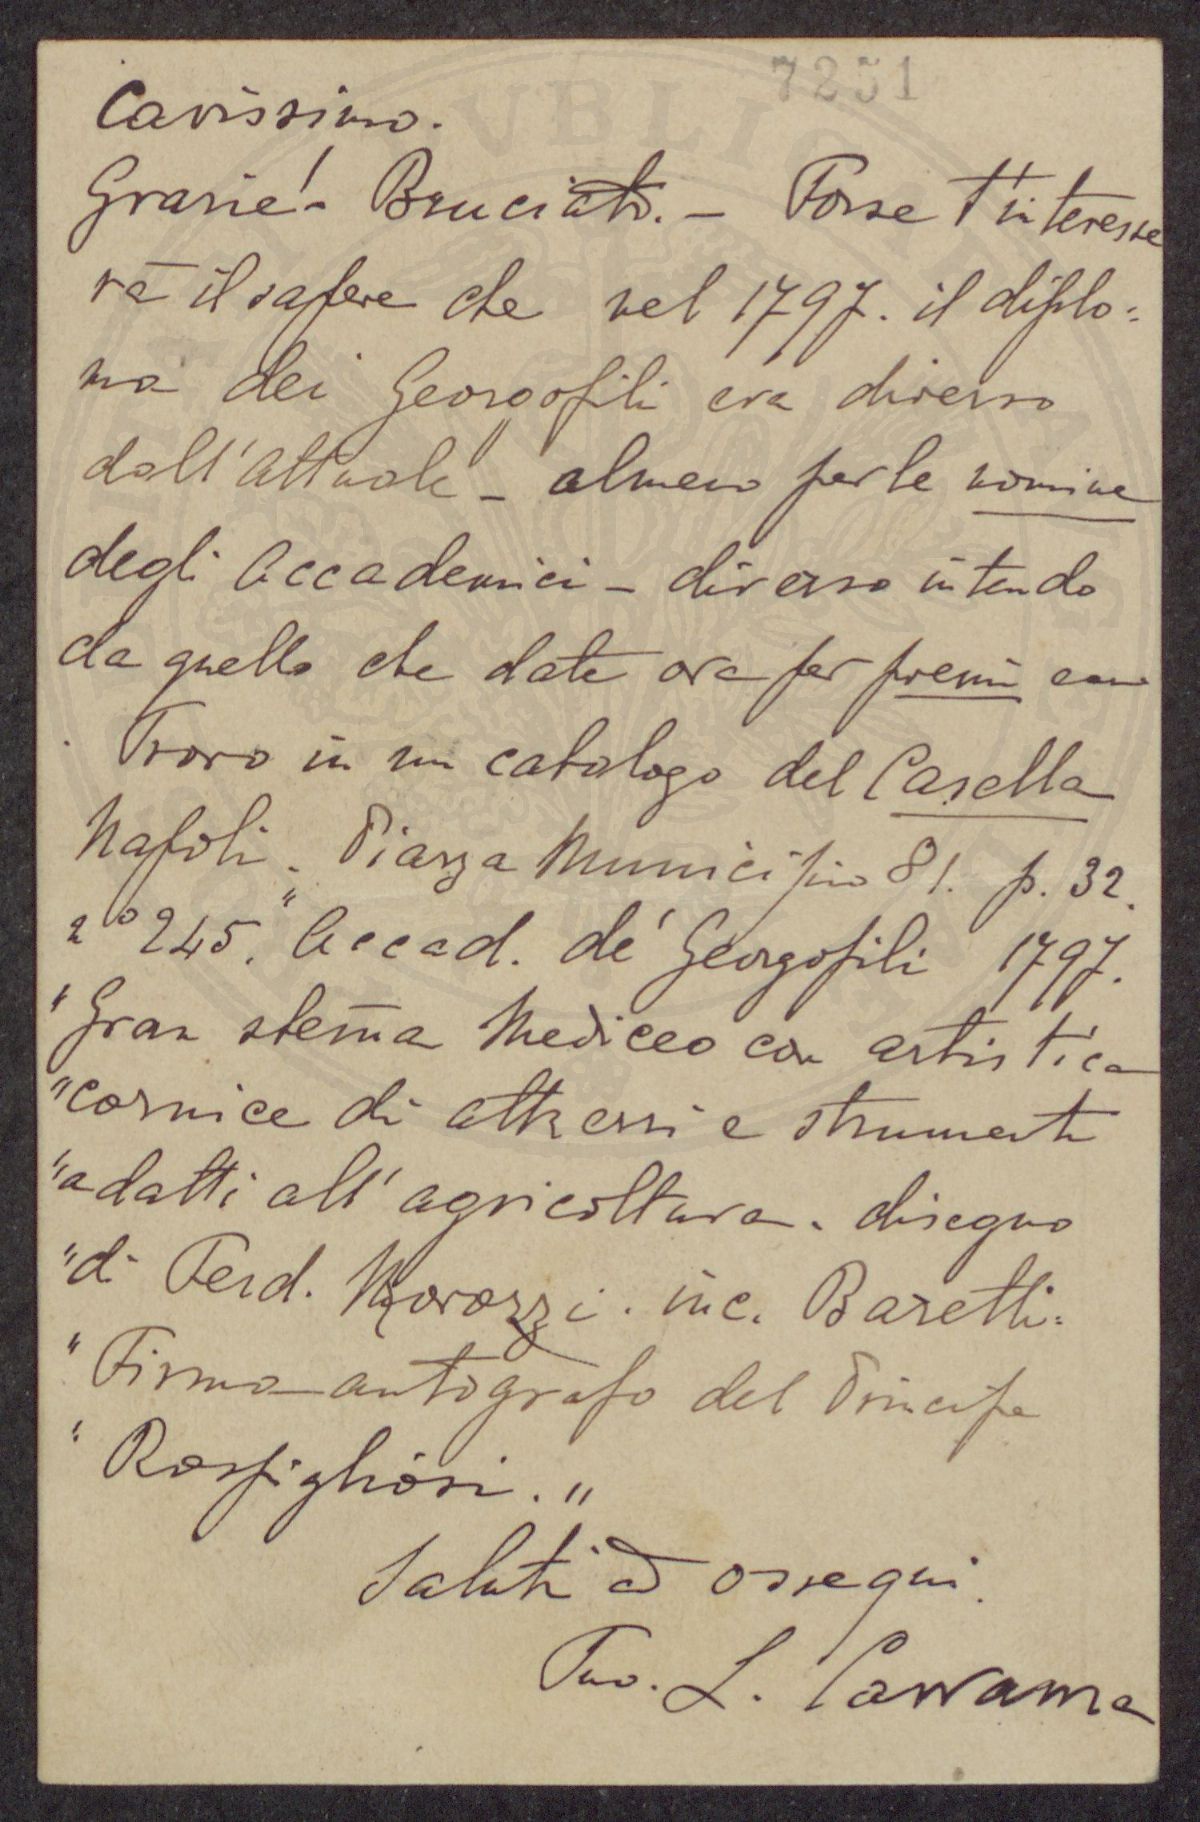 7251
Carissimo.
Grazie! - Bruciato. - Forse t'interesse
rà il sapere che nel 1797. il diplo:
ma dei Georgofili era diverso
dall'attuale - almeno per le nomine
degli Accademici - diverso intendo
da quello che date ora per premi
Trovo in un catalogo del Casella
Napoli. Piazza Municipio 81. p. 32.
n° 245. "Accad. de' Georgofili 1797.
"Gran stema Mediceo con artistica
"cornice di attrezzi e strumenti
"adatti all'agricoltura. disegno
"di Ferd. Morozzi. inc. Baretti.
"Firma autografo del Principe
"Rospigliosi."
Saluti ed ossequi.
Tuo. L.